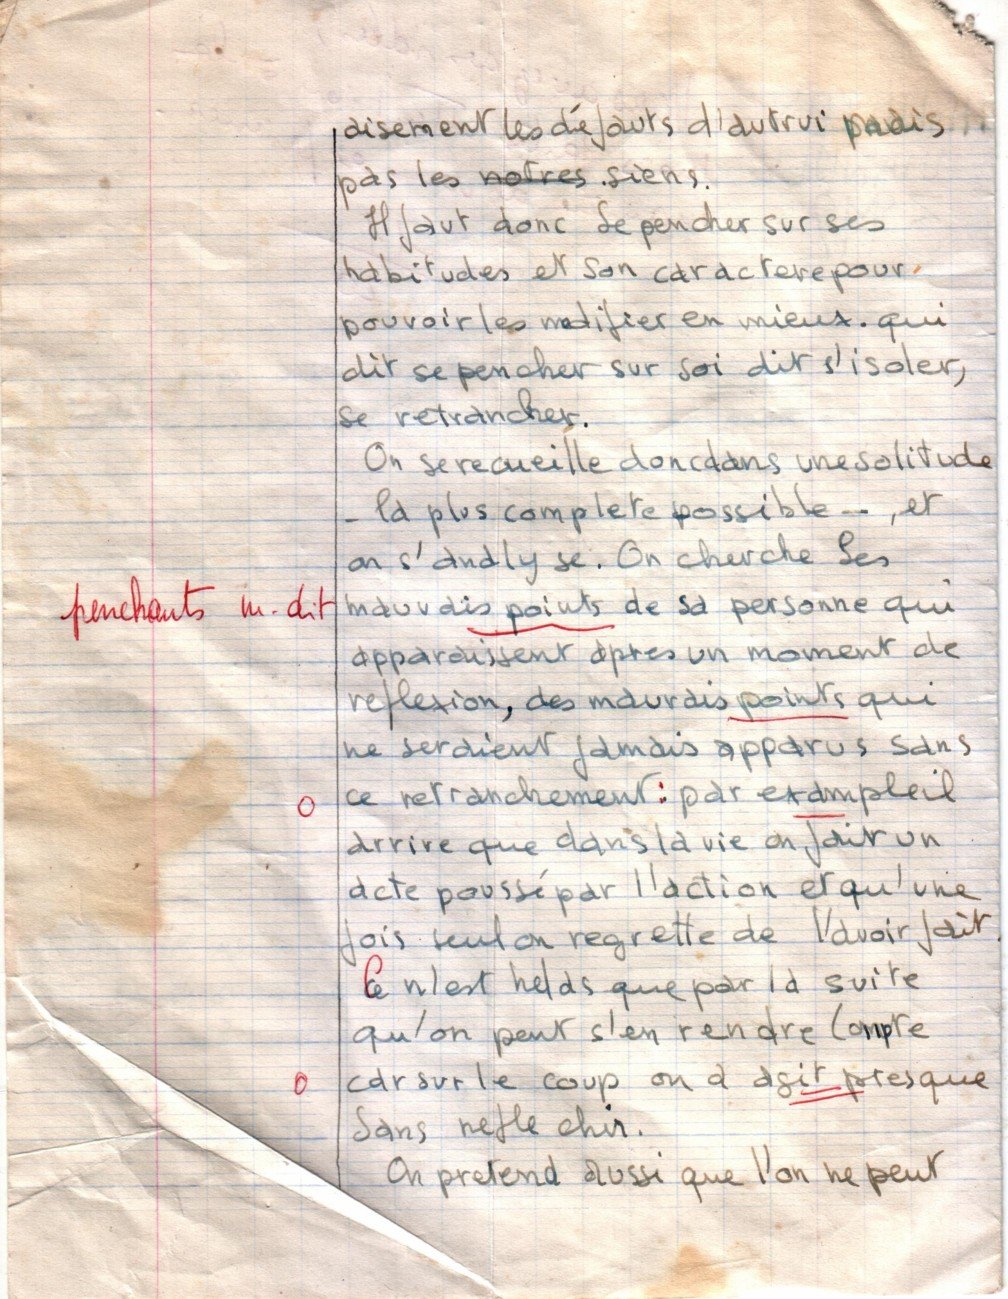 aisement les défauts d'autrui mais
pas les notres siens.
Il faut donc se pencher sur ses
habitudes et son caractere pour
pouvoir les modifier en mieux. qui
dit se pencher sur soi dit s'isoler,
se retrancher.
On se recueille donc dans une solitude
- la plus complete possible -, et
on s'analyse. On cherche les
penchants m. dit mauvais points de sa personne qui
apparaissent apres un moment de
reflexion, des mauvais points qui
ne seraient jamais apparus sans
ce retranchement : par example il
arrive que dans la vie on fait un
acte poussé par l'action et qu'une
fois seul on regrette de l'avoir fait.
Ce n'est helas que par la suite
qu'on peut s'en rendre compte
car sur le coup on a agit presque
sans reflechir.
On pretend aussi que l'on ne peut